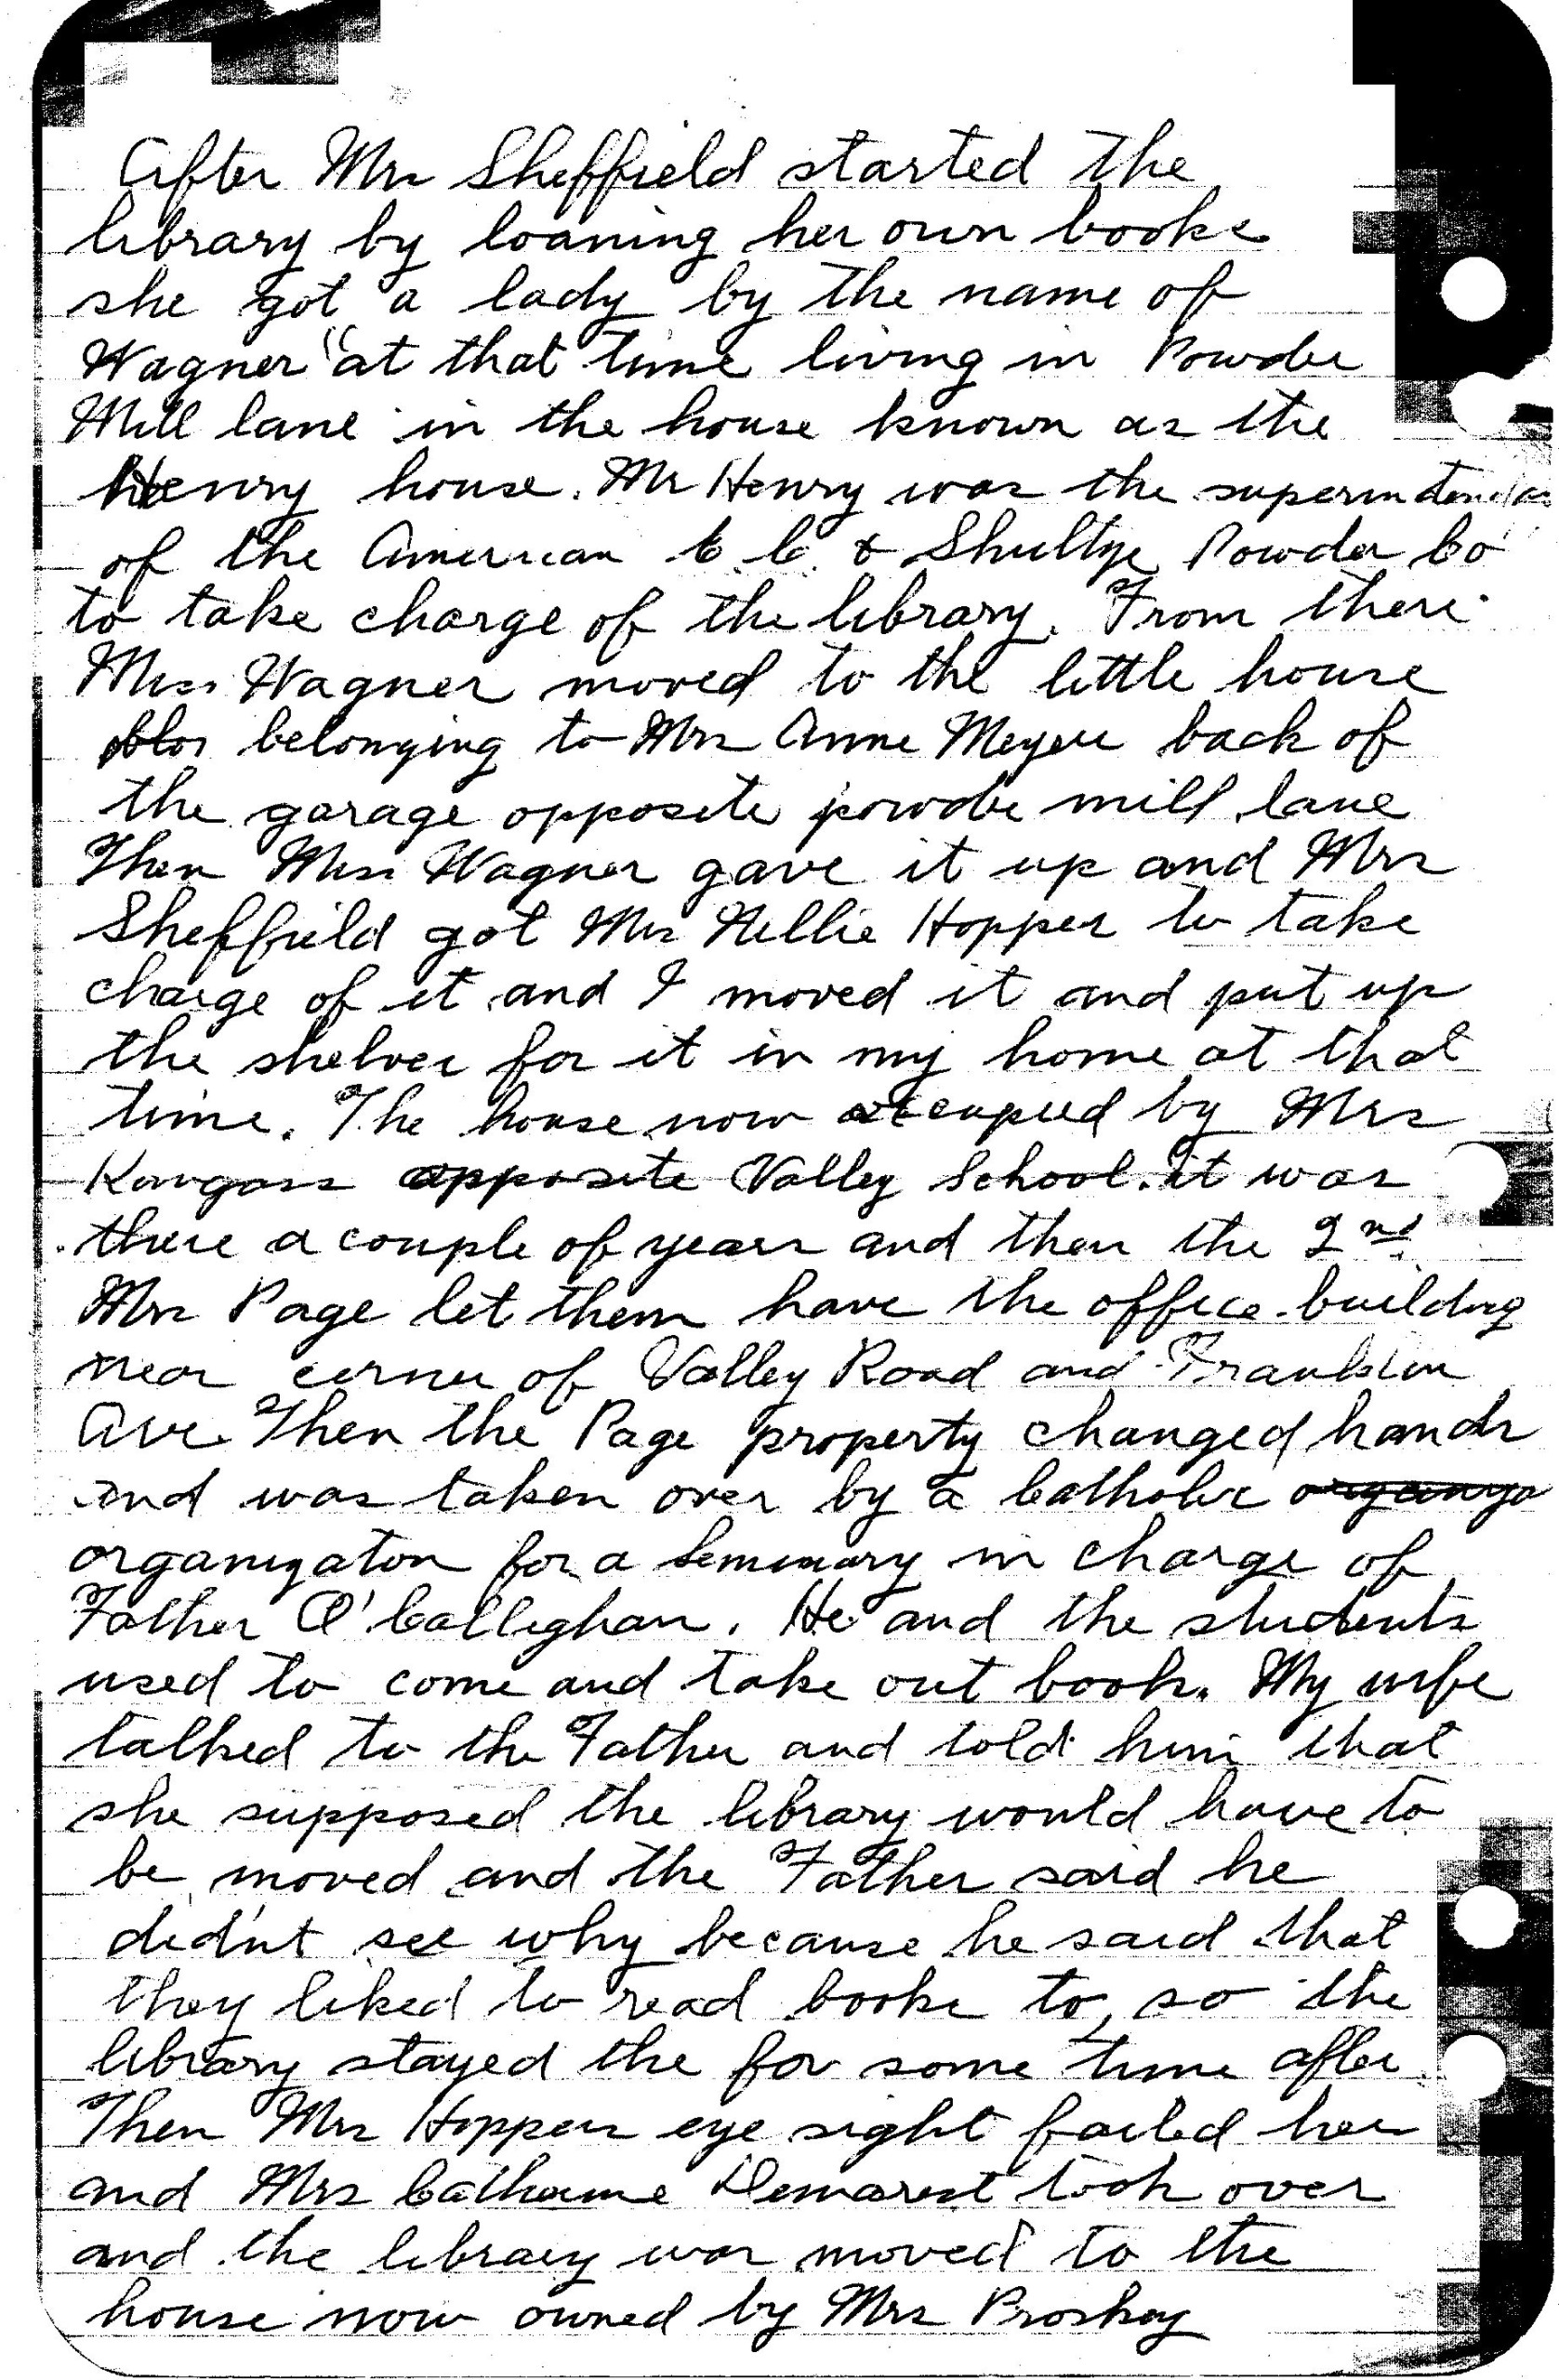 After Mrs Sheffield started the
library by loaning her own books
she got a lady by the name of
Wagner at that time living in Powder
Mill lane in the house known as the
Henry house. Mr Henry was the superintendent
of the American E. C. & Shultze Powder Co
to take charge of the library. From there
Miss Wagner moved to the little house
belonging to Mrs Anne Meyer back of
the garage opposite powder mill lane
Then Miss Wagner gave it up and Mrs
Sheffield got Mrs Nellie Hopper to take
charge of it and I moved it and put up
the shelves for it in my home at that
time. The house now occupied by Mrs
opposite Valley School. it was
there a couple of years and then the 2nd
Mrs Page let them have the office building
near corner of Valley Road and Franklin
Ave. Then the Page property changed hands
and was taken over by a Catholic
organizaton for a Seminary in charge of
Father O'Calleghan. He and the students
used to come and take out books. My wife
talked to the Father and told him that
she supposed the library would have to
be moved and the Father said he
didn't see why because he said that
they liked to read books to, so the
library stayed the for some time after
Then Mrs Hoppers eye sight failed her
and Mrs Catherine Demarest took over
and the library was moved to the
house now owned by Mrs Proskey